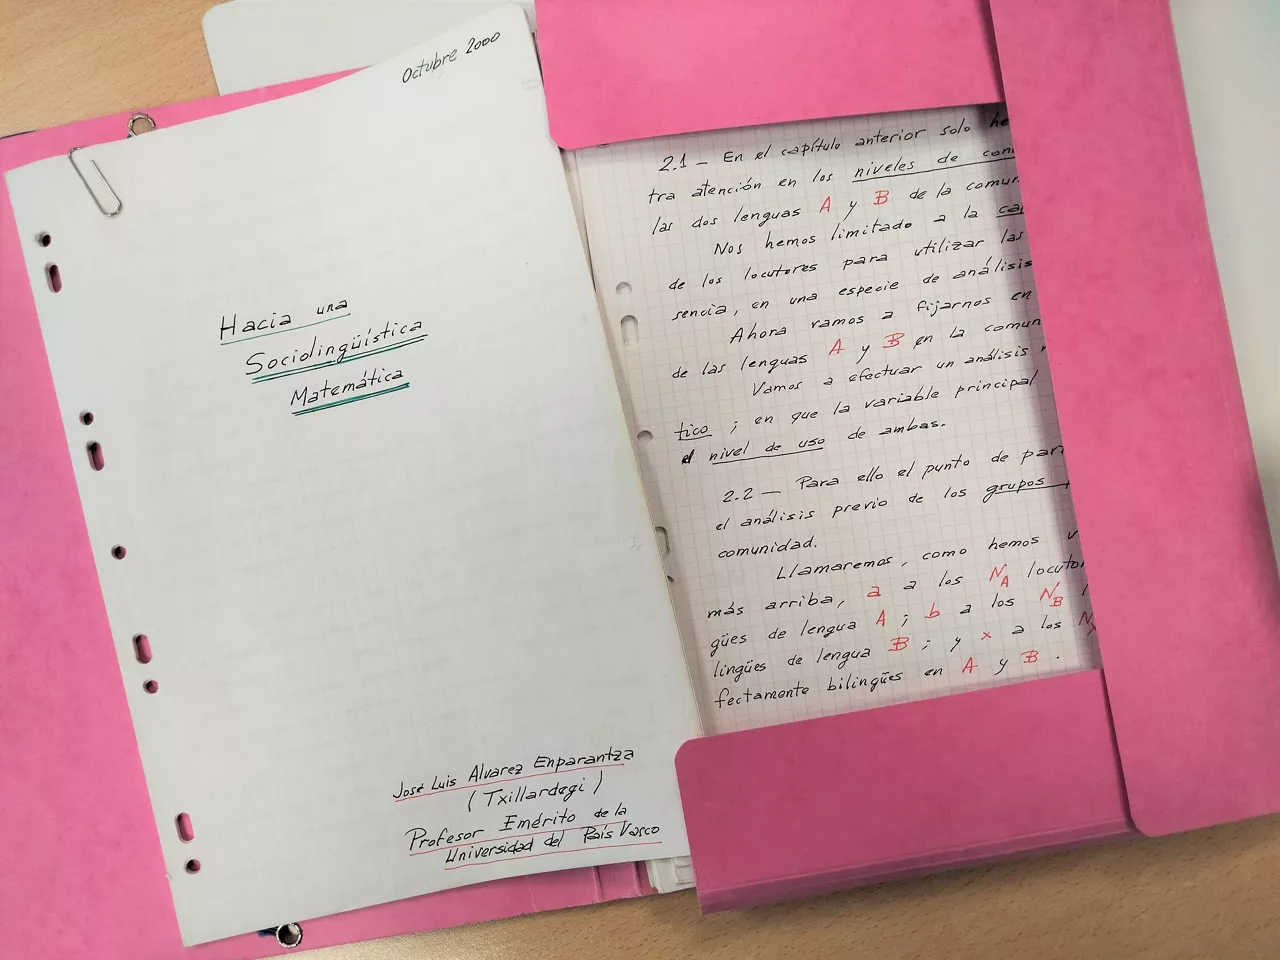 Octubre 2000
Hacia una
Sociolingüística
Matemática
José Luis Alvarez Enparantza
( Txillardegi )
Profesor Emérito de la
Universidad del País Vasco
2.1 — En el capítulo anterior solo he
tra atención en los niveles de con
las dos lenguas A y B de la comun
Nos hemos limitado a la ca
de los locutores para utilizar las
sencia, en una especie de análisis
Ahora vamos a fijarnos en
de las lenguas A y B en la comun
Vamos a efectuar un análisis
tico ; en que la variable principal
el nivel de uso de ambas.
2.2 — Para ello el punto de par
el análisis previo de los grupos
comunidad.
Llamaremos, como hemos v
más arriba, a a los N_A locuto
gües de lengua A ; b a los N_B
lingües de lengua B ; y x a los N_x
fectamente bilingües en A y B .